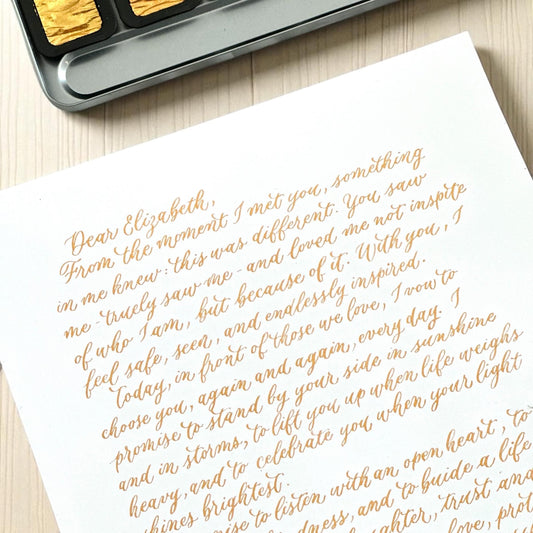 Dear Elizabeth,
From the moment I met you, something
in me knew: this was different. You saw
me - truely saw me - and loved me not inspite
of who I am, but because of it. With you, I
feel safe, seen, and endlessly inspired.
Today, in front of those we love, I vow to
choose you, again and again, every day. I
promise to stand by your side in sunshine
and in storms, to lift you up when life weighs
heavy, and to celebrate you when your light
shines brightest.
to listen with an open heart, to
and to buide a life
trust and
love,